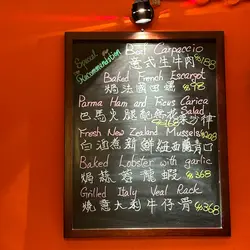 Special
Recommendation
Beef Carpaccio
意式生牛肉 $188
Baked French Escargot
焗法國田螺 $98
Parma Ham and Ficus Carica
Salad
巴馬火腿配無花果沙律
$168
Fresh New Zealand Mussels $128
白酒煮新鮮紐西蘭青口
Baked Lobster with garlic
焗蒜蓉龍蝦 $368
Grilled Italy Veal Rack
燒意大利牛仔骨 $368